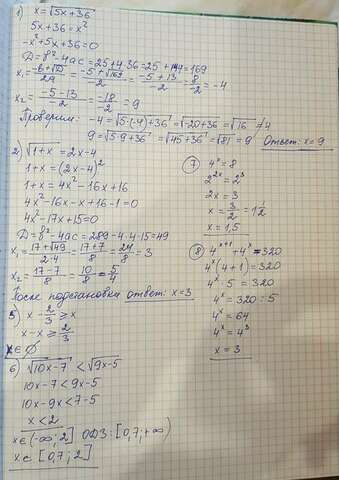 1) x = √5x+36
5x+36 = x²
-x²+5x+36 = 0
D = b²-4ac = 25+4·36 = 25+144 = 169
x₁ = -b+√D/2a = -5+√169/-2 = -5+13/-2 = 8/-2 = -4
x₂ = -5-13/-2 = -18/-2 = 9
Проверим: -4 = √5·(-4)+36 = √-20+36 = √16 ≠ 4
9 = √5·9+36 = √45+36 = √81 = 9 Ответ: x = 9
2) √1+x = 2x-4
1+x = (2x-4)²
1+x = 4x²-16x+16
4x²-16x-x+16-1 = 0
4x²-17x+15 = 0
D = b²-4ac = 289-4·4·15 = 49
x₁ = 17+√49/2·4 = 17+7/8 = 24/8 = 3
x₂ = 17-7/8 = 10/8 = 5/4
После подстановки ответ: x = 3
5) x - 2/3 ≥ x
x-x ≥ 2/3
x ∈ ∅
6) √10x-7 < √9x-5
10x-7 < 9x-5
10x-9x < 7-5
x < 2
x ∈ (-∞; 2] ОДЗ: [0,7; +∞)
x ∈ [0,7; 2]
7) 4ˣ = 8
2²ˣ = 2³
2x = 3
x = 3/2 = 1½
x = 1,5
8) 4ˣ⁺¹ + 4ˣ = 320
4ˣ(4+1) = 320
4ˣ · 5 = 320
4ˣ = 320 : 5
4ˣ = 64
4ˣ = 4³
x = 3